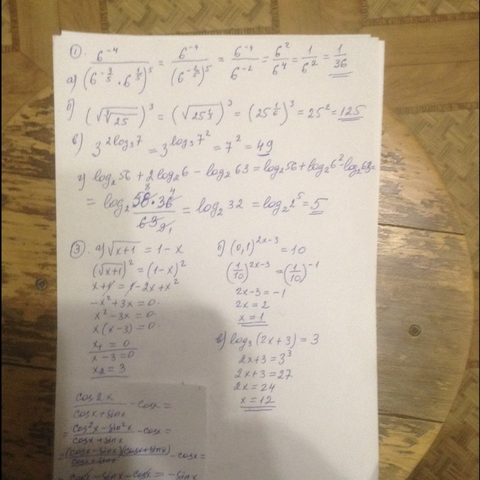 ① a) 6^-4 / (6^(-3/5) · 6^(1/5))^5 = 6^-4 / (6^(-2/5))^5 = 6^-4 / 6^-2 = 6^2 / 6^4 = 1 / 6^2 = 1 / 36
б) (√∛25)^3 = (√25^(1/3))^3 = (25^(1/6))^3 = 25^2 = 125
в) 3^(2log₃7) = 3^(log₃7^2) = 7^2 = 49
г) log₂56 + 2log₂6 - log₂63 = log₂56 + log₂6^2 - log₂63 =
= log₂ 56·36 / 63 = log₂32 = log₂2^5 = 5
③ a) √x+1 = 1-x
(√x+1)^2 = (1-x)^2
x+1 = 1-2x+x^2
-x^2+3x=0
x^2-3x=0
x(x-3)=0
x₁=0
x-3=0
x₂=3
б) (0,1)^(2x-3) = 10
(1/10)^(2x-3) = (1/10)^-1
2x-3=-1
2x=2
x=1
в) log₃(2x+3)=3
2x+3=3^3
2x+3=27
2x=24
x=12
cos2x / cosx+sinx - cosx =
= cos^2x-sin^2x / cosx+sinx - cosx =
= (cosx-sinx)(cosx+sinx) / cosx+sinx - cosx =
- sinx - cosx = -sinx